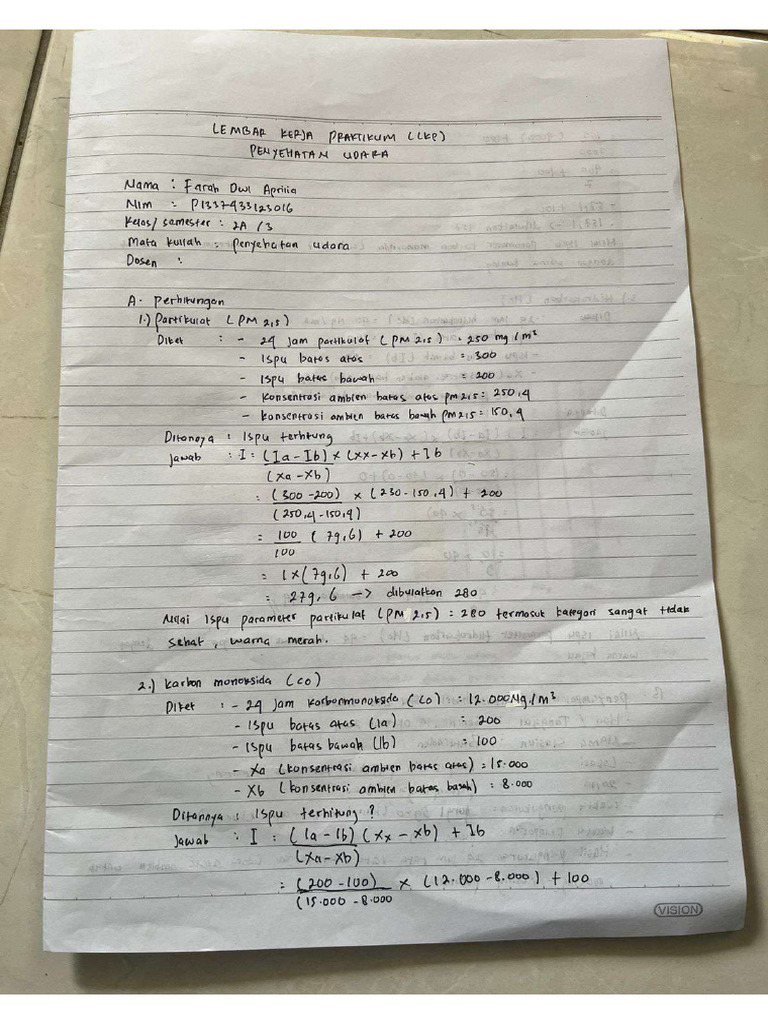 LEMBAR KERJA PRAKTIKUM (LKP)
PENYEHATAN UDARA
Nama : Farah Dwi Aprilia
NIM : P1337433123016
Kelas/ semester : 2A / 3
Mata kuliah : penyehatan udara
Dosen :
A. perhitungan
1.) partikulat (PM 2,5)
Diket : - 24 jam partikulat (PM 2,5) : 250 mg/m³
- Ispu batas atas = 300
- Ispu batas bawah = 200
- Konsentrasi ambien batas atas PM 2,5 = 250,4
- Konsentrasi ambien batas bawah PM 2,5 = 150,4
Ditanya : Ispu terhitung
Jawab : I = (Ia - Ib) x (Xx - Xb) + Ib
(Xa - Xb)
= (300 - 200) x (230 - 150,4) + 200
(250,4 - 150,4)
= 100 (79,6) + 200
100
= 1 x (79,6) + 200
= 279,6 -> dibulatkan 280
Nilai Ispu parameter partikulat (PM 2,5) = 280 termasuk kategori sangat tidak
sehat, warna merah.
2.) Karbon monoksida (CO)
Diket : - 24 jam karbonmonoksida (CO) : 12.000 Ng/m³
- Ispu batas atas (Ia) : 200
- Ispu batas bawah (Ib) : 100
- Xa (konsentrasi ambien batas atas) = 15.000
- Xb (konsentrasi ambien batas bawah) : 8.000
Ditannya : Ispu terhitung ?
Jawab : I : (Ia - Ib) (Xx - Xb) + Ib
(Xa - Xb)
= (200 - 100) x (12.000 - 8.000) + 100
(15.000 - 8.000
VISION